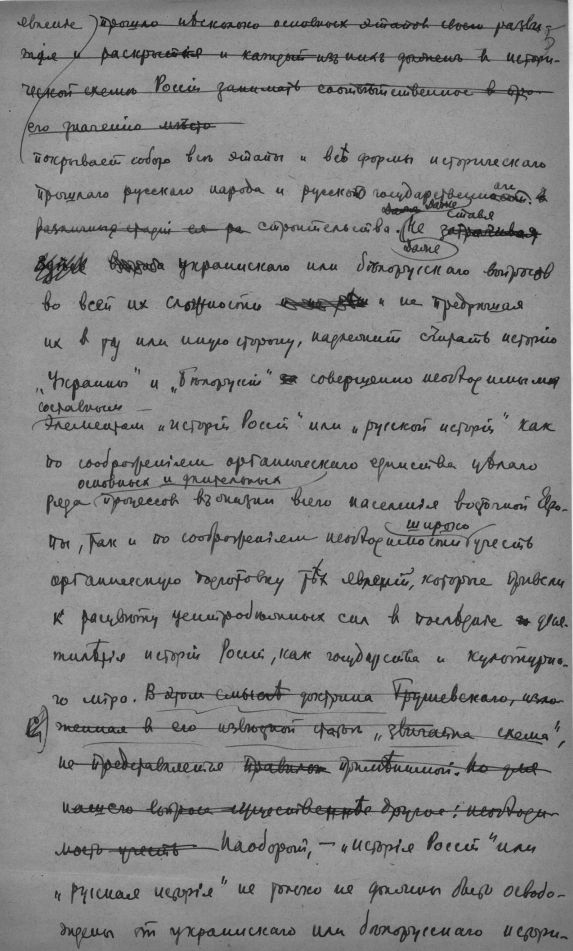 явленіе прошло нѣсколько основныхъ этаповъ своего разви-
тія и раскрытія и каждый изъ нихъ долженъ в истори-
ческой схемѣ Россіи занимать соотвѣтственное
его значенію мѣсто
покрываетъ собою всѣ этапы и всѣ формы историческаго
прошлаго русскаго народа и русской государственной
строительства. Не ставя
даже
украинскаго или бѣлорусскаго вопросов
во всей их сложности и не предрѣшая
их в ту или иную сторону, надлежит считать исторію
„Украины" и „Бѣлоруссіи" совершенно необходимыми
составным
элементам „исторіи Россіи" или „русской исторіи" как
по соображеніям органическаго единства цѣлаго
основных и длительных
ряда процессов в жизни всего населенія восточной Евро-
широко
пы, так и по соображеніям необходимости учесть
органическую подготовку тѣх явленій, которые привели
к расцвѣту центробѣжных сил в послѣдніе деся-
тилѣтія исторіи Россіи, как государства и культурно-
го міра. В этом смыслѣ доктрина Грушевскаго, изло-
женная в его извѣстной статьѣ „звичайна схема",
не представляется правильно пріемлемой. Но для
нашего вопроса существеннѣе другое: необходи-
мость учесть Наоборот, — „исторія Россіи" или
„русская исторія" не только не должны быть освобо-
ждены от украинскаго или бѣлорусскаго истори-